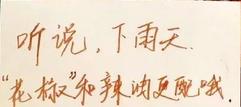 听说，下雨天.
“花椒”和辣油更配哦.